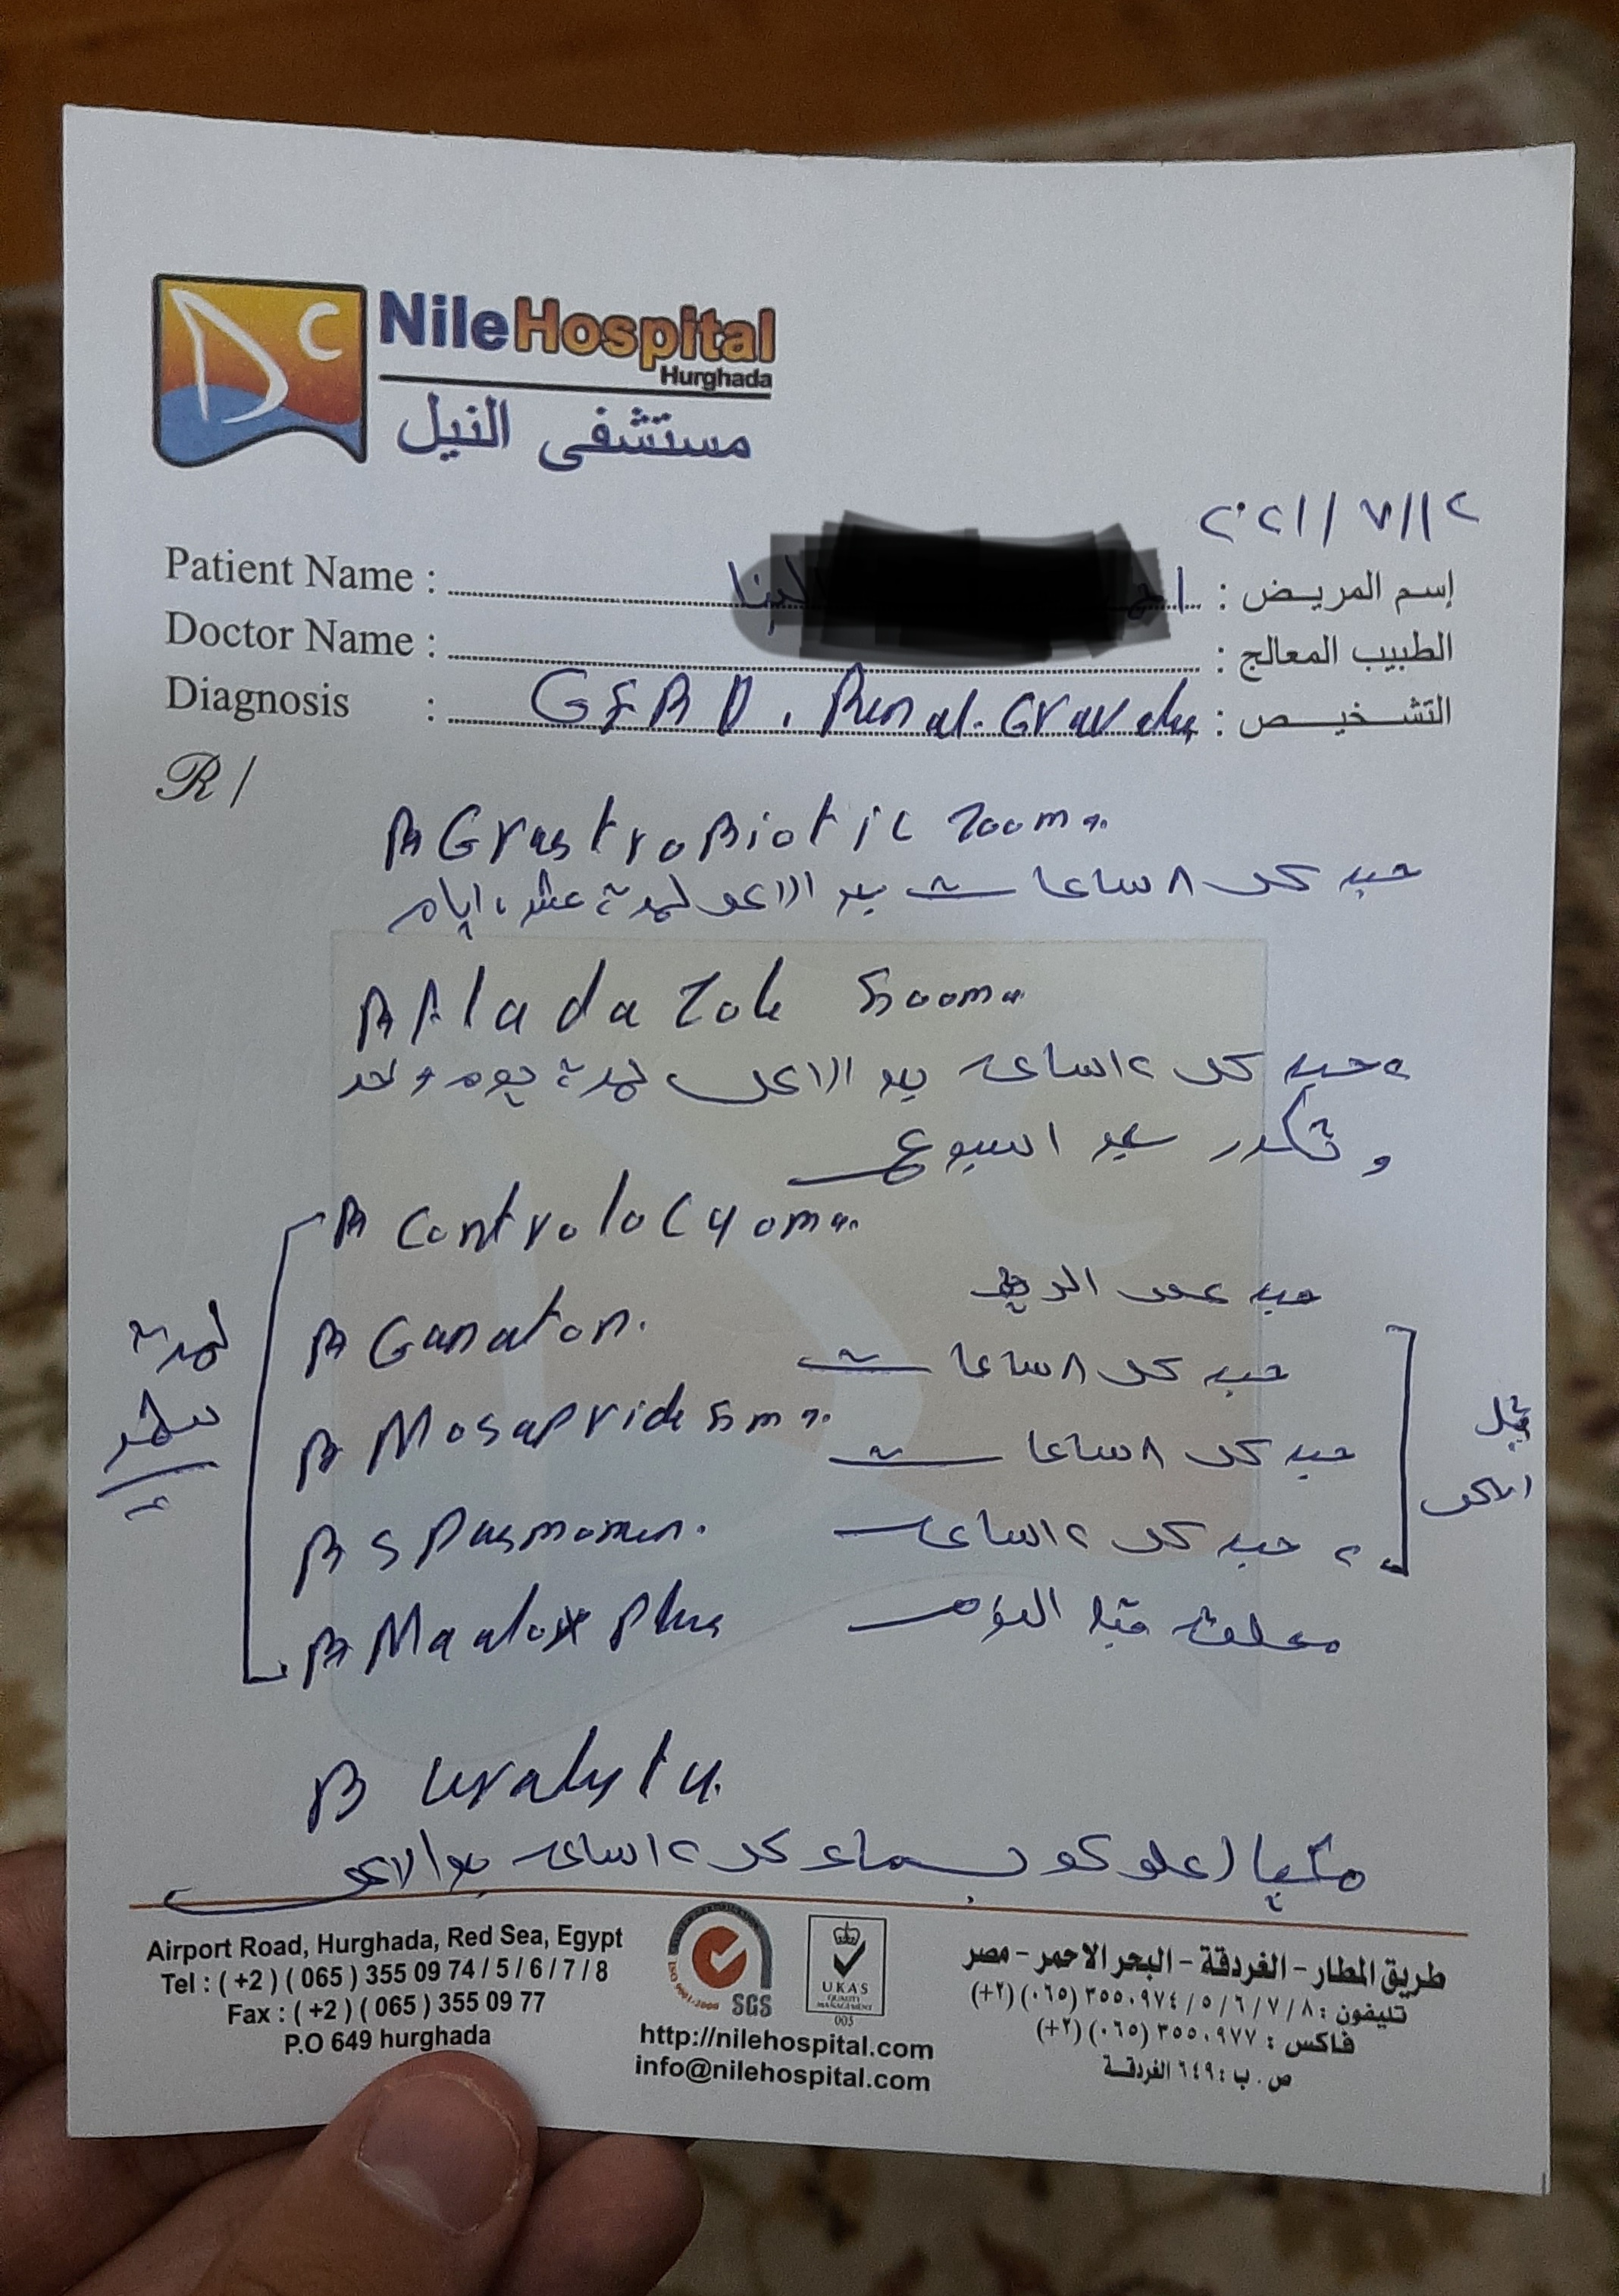 NileHospital
Hurghada
مستشفى النيل
٢٠٢١/٧/١٢
Patient Name : إسم المريــض :
Doctor Name : الطبيب المعالج :
Diagnosis : GERD . Renal Gravels التشــخيــص :
R/
R GrastroBiotic 200mg
حبه كل ٨ ساعات بعد الاكل لمدة عشرة ايام
R Aladazole 500mg
٢ حبه كل ١٢ ساعه بعد الاكل لمدة يوم واحد
وتكرر بعد اسبوع
R Controloc 40mg
حبه على الريق
R Ganaton.
حبه كل ٨ ساعات
R Mosapride 5mg.
حبه كل ٨ ساعات
R Spasmomen.
حبه كل ١٢ ساعه
R Maalox Plus
معلقة قبل النوم
لمدة
شهر
قبل
الاكل
R Uralyt u.
مكيال على كوب ماء كل ١٢ ساعه بعد الاكل
Airport Road, Hurghada, Red Sea, Egypt
Tel : ( +2 ) ( 065 ) 355 09 74 / 5 / 6 / 7 / 8
Fax : ( +2 ) ( 065 ) 355 09 77
P.O 649 hurghada
ISO 9001:2008
SGS
UKAS
QUALITY
MANAGEMENT
005
http://nilehospital.com
info@nilehospital.com
طريق المطار - الغردقة - البحر الاحمر - مصر
تليفون : ٨ / ٧ / ٦ / ٥ / ٣٥٥٠٩٧٤ (٠٦٥) (٢+)
فاكس : ٣٥٥٠٩٧٧ (٠٦٥) (٢+)
ص . ب : ٦٤٩ الغردقـة